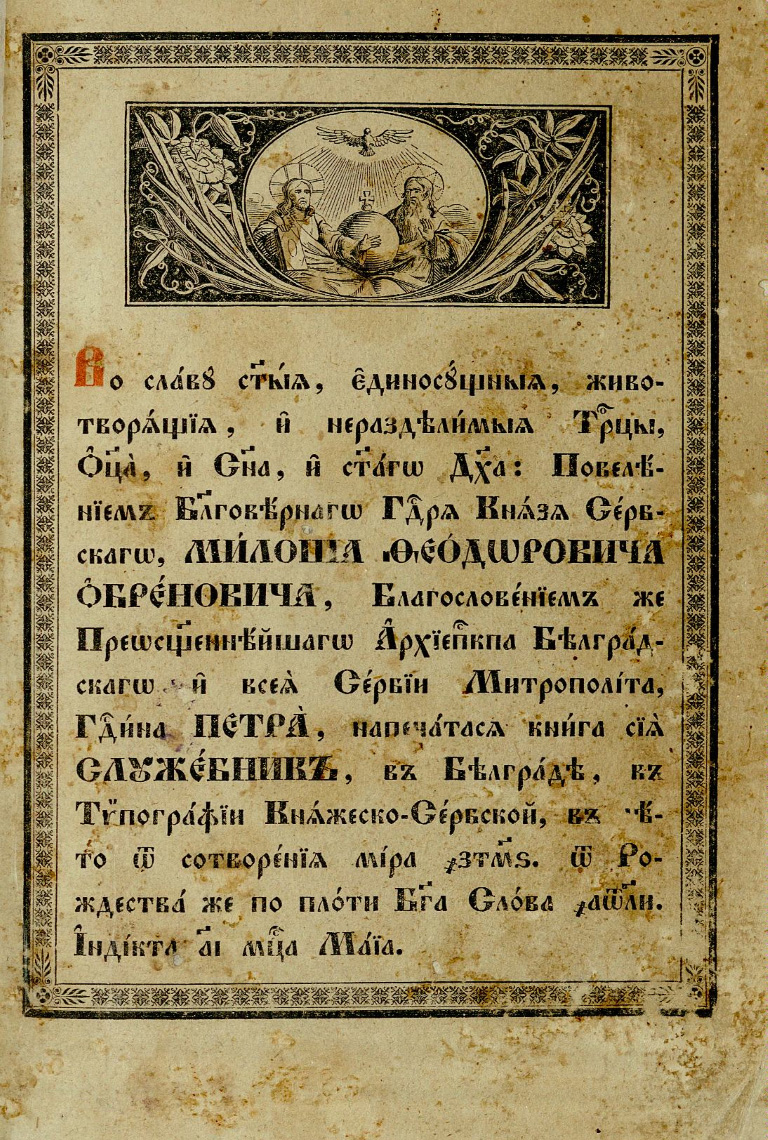 Во сла́вꙋ ст҃ы́ѧ, є҆диносꙋ́щныѧ, живо-
творѧ́щїѧ, и҆ нераздѣли́мыѧ Трⷪ҇цы,
Ѻ҆ц҃а̀, и҆ Сн҃а, и҆ ст҃а́гѡ Дх҃а: Повелѣ́-
нїемъ Бл҃говѣ́рнагѡ Гдⷭ҇рѧ Кнѧ́зѧ Се́рб-
скагѡ, МИ́ЛОША Ѳ҆ЕѺ́ДѠРОВИЧА
Ѻ҆БРЕ́НОВИЧА, Благослове́нїемъ же
Преѡсщ҃еннѣ́йшагѡ А҆рхїепⷭ҇кпа Бѣлгра́д-
скагѡ и҆ всеѧ̀ Се́рбїи Митрополі́та,
Гдⷭ҇и́на ПЕТРА̀, напеча́тасѧ кни́га сїѧ̀
СЛꙊЖЕ́БНИКЪ, въ Бѣлгра́дѣ, въ
Тѷпогра́фїи Кнѧ́жеско-Се́рбской, въ лѣ́-
то ѿ сотворе́нїѧ мі́ра ҂зтм҃ѕ. ѿ Ро-
ждества́ же по пло́ти Бг҃а Сло́ва ҂аѿл҃и.
І҆нді́кта а҃і мцⷭ҇а Ма́їа.